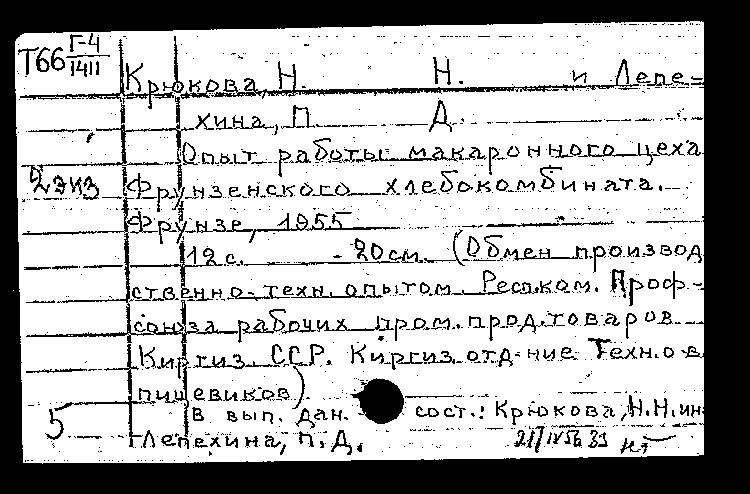 Т66 Г-4
1411
Крюкова, Н. Н. и Лепе-
хина, П. Д.
Опыт работы макаронного цеха
2 экз Фрунзенского хлебокомбината.
Фрунзе, 1955
12 с. - 20 см. (Обмен производ
ственно-техн. опытом. Респ.ком. Проф-
союза рабочих пром.прод.товаров
Киргиз. ССР. Киргиз. отд-ние Техн. о-в
пищевиков)
В вып. дан. сост.: Крюкова, Н.Н. и
5 Лепехина, П. Д.